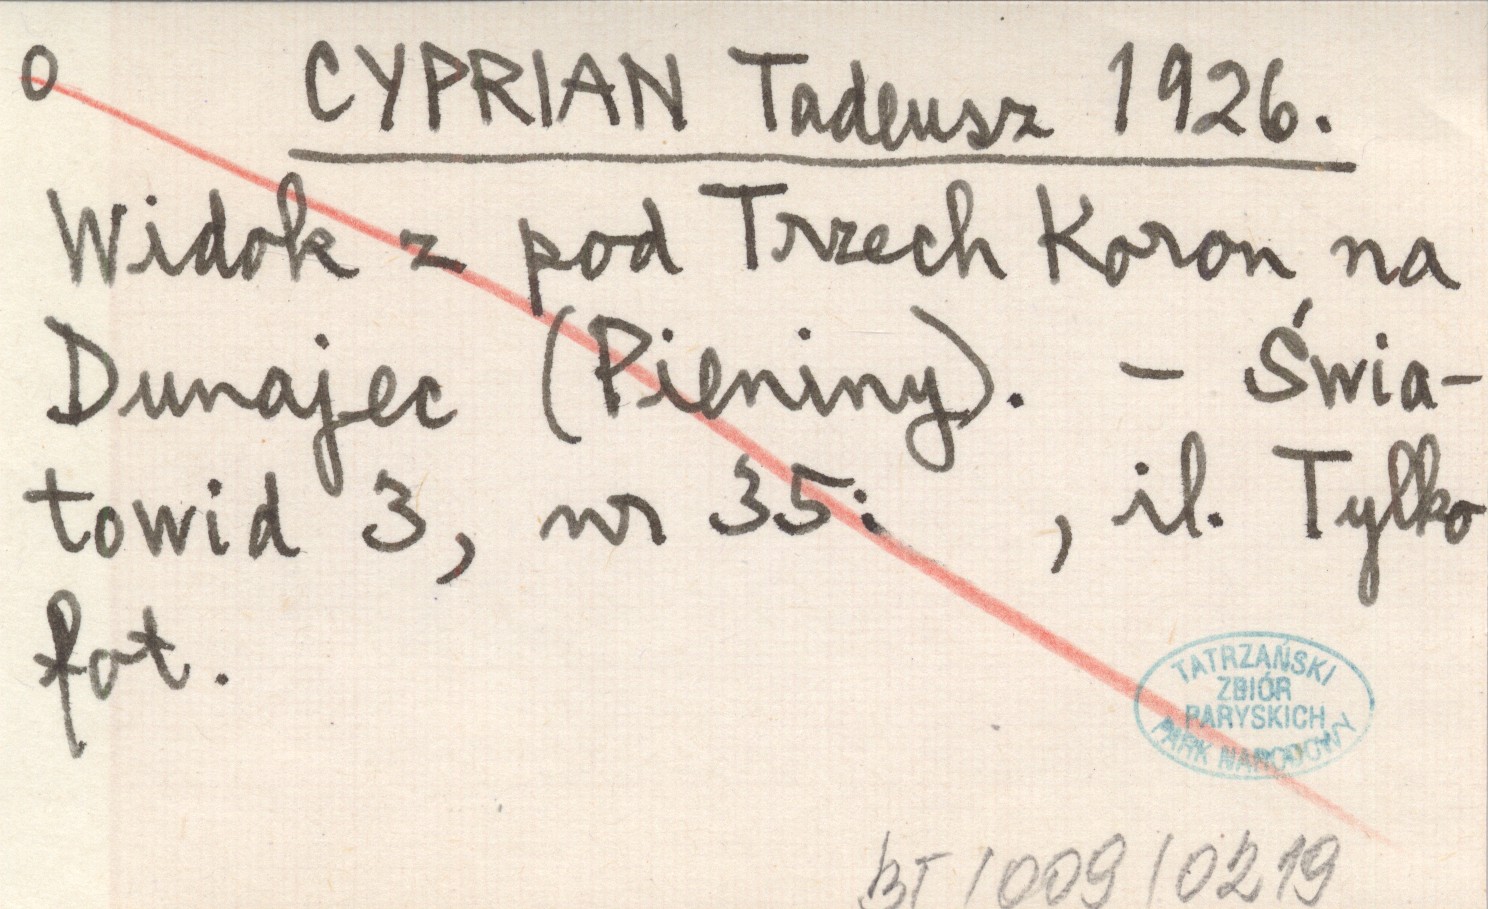 O CYPRIAN Tadeusz 1926.
Widok z pod Trzech Koron na
Dunajec (Pieniny). – Świa-
towid 3, nr 35: , il. Tylko
fot.
TATRZAŃSKI
ZBIÓR
PARYSKICH
PARK NARODOWY
BT/009/0219